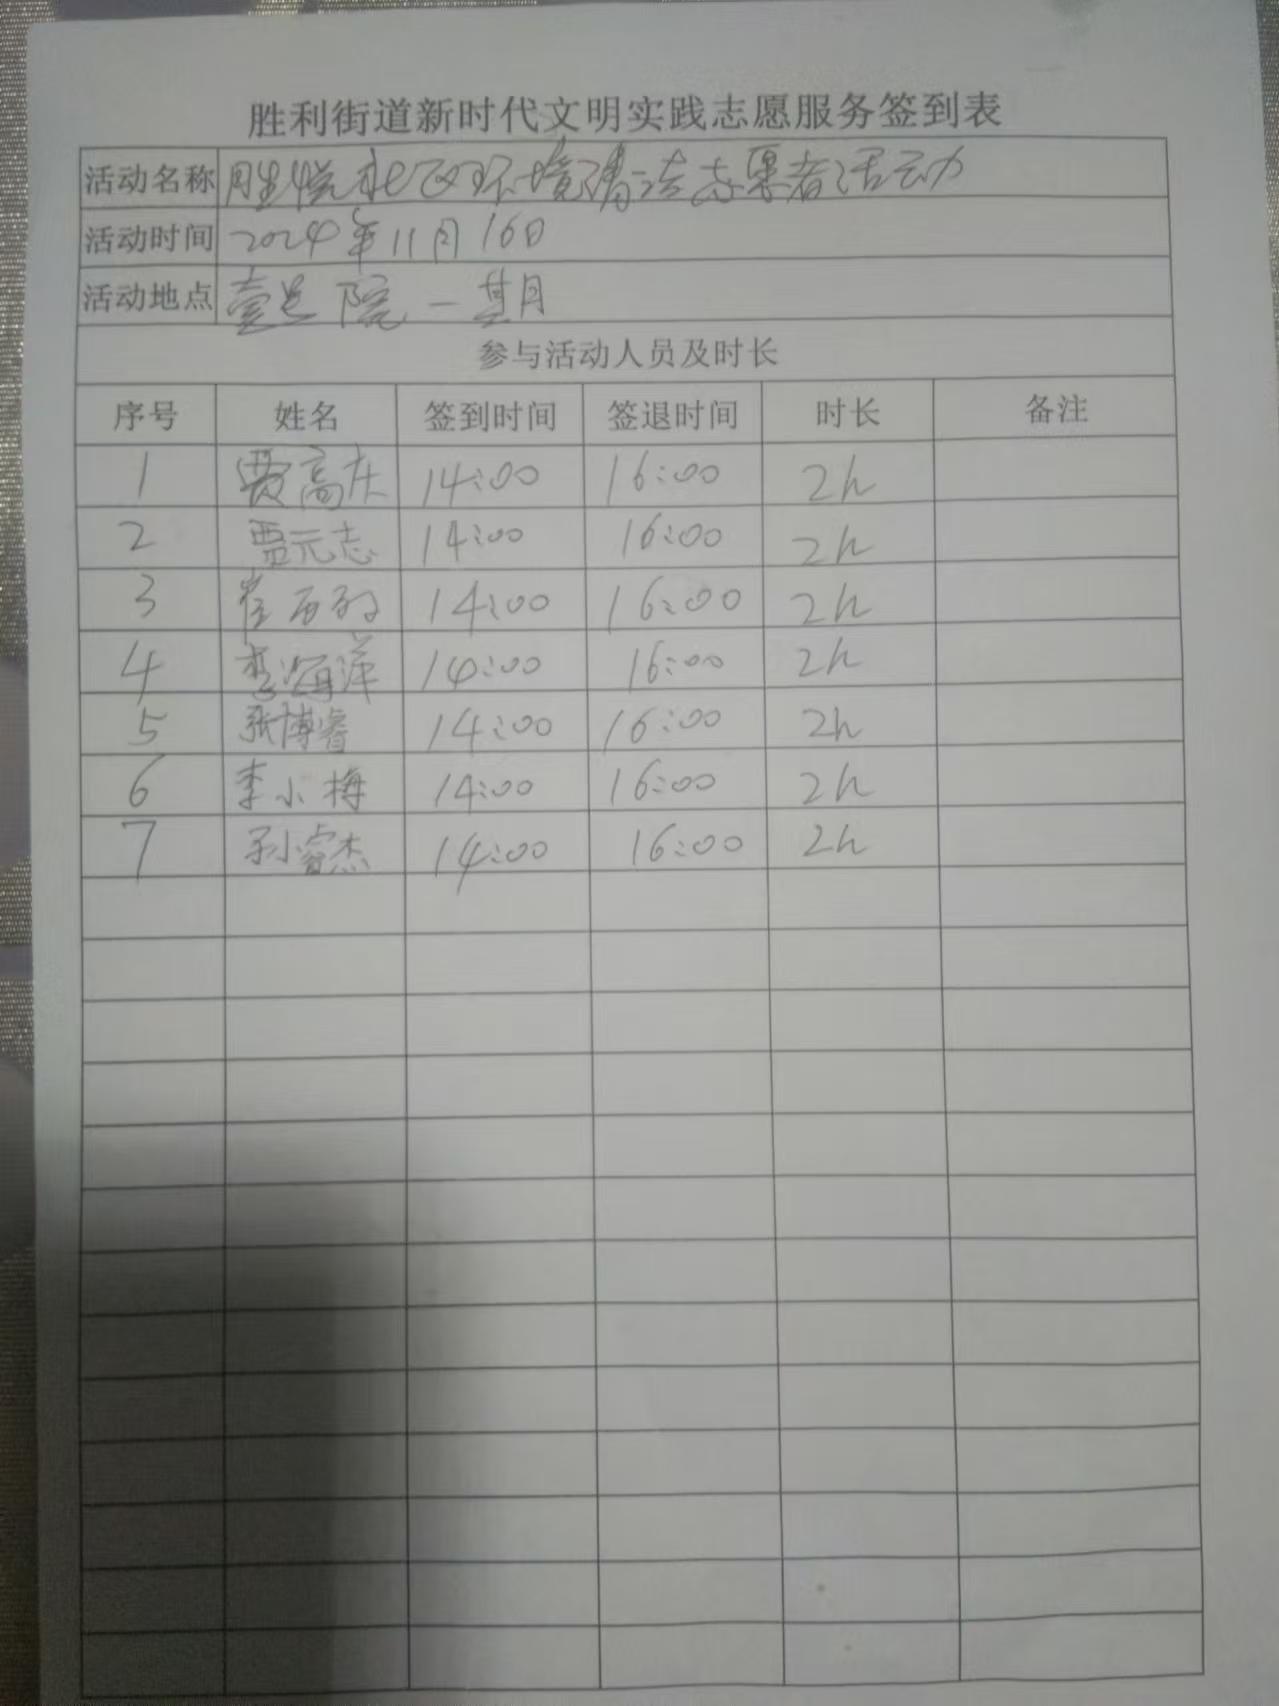 胜利街道新时代文明实践志愿服务签到表
活动名称 胜悦社区环境清洁志愿者活动
活动时间 2024年11月16日
活动地点 院一期
参与活动人员及时长
序号 姓名 签到时间 签退时间 时长 备注
1 贾高庆 14:00 16:00 2h
2 贾元志 14:00 16:00 2h
3 崔 14:00 16:00 2h
4 李海萍 14:00 16:00 2h
5 张博睿 14:00 16:00 2h
6 李小梅 14:00 16:00 2h
7 孙睿杰 14:00 16:00 2h